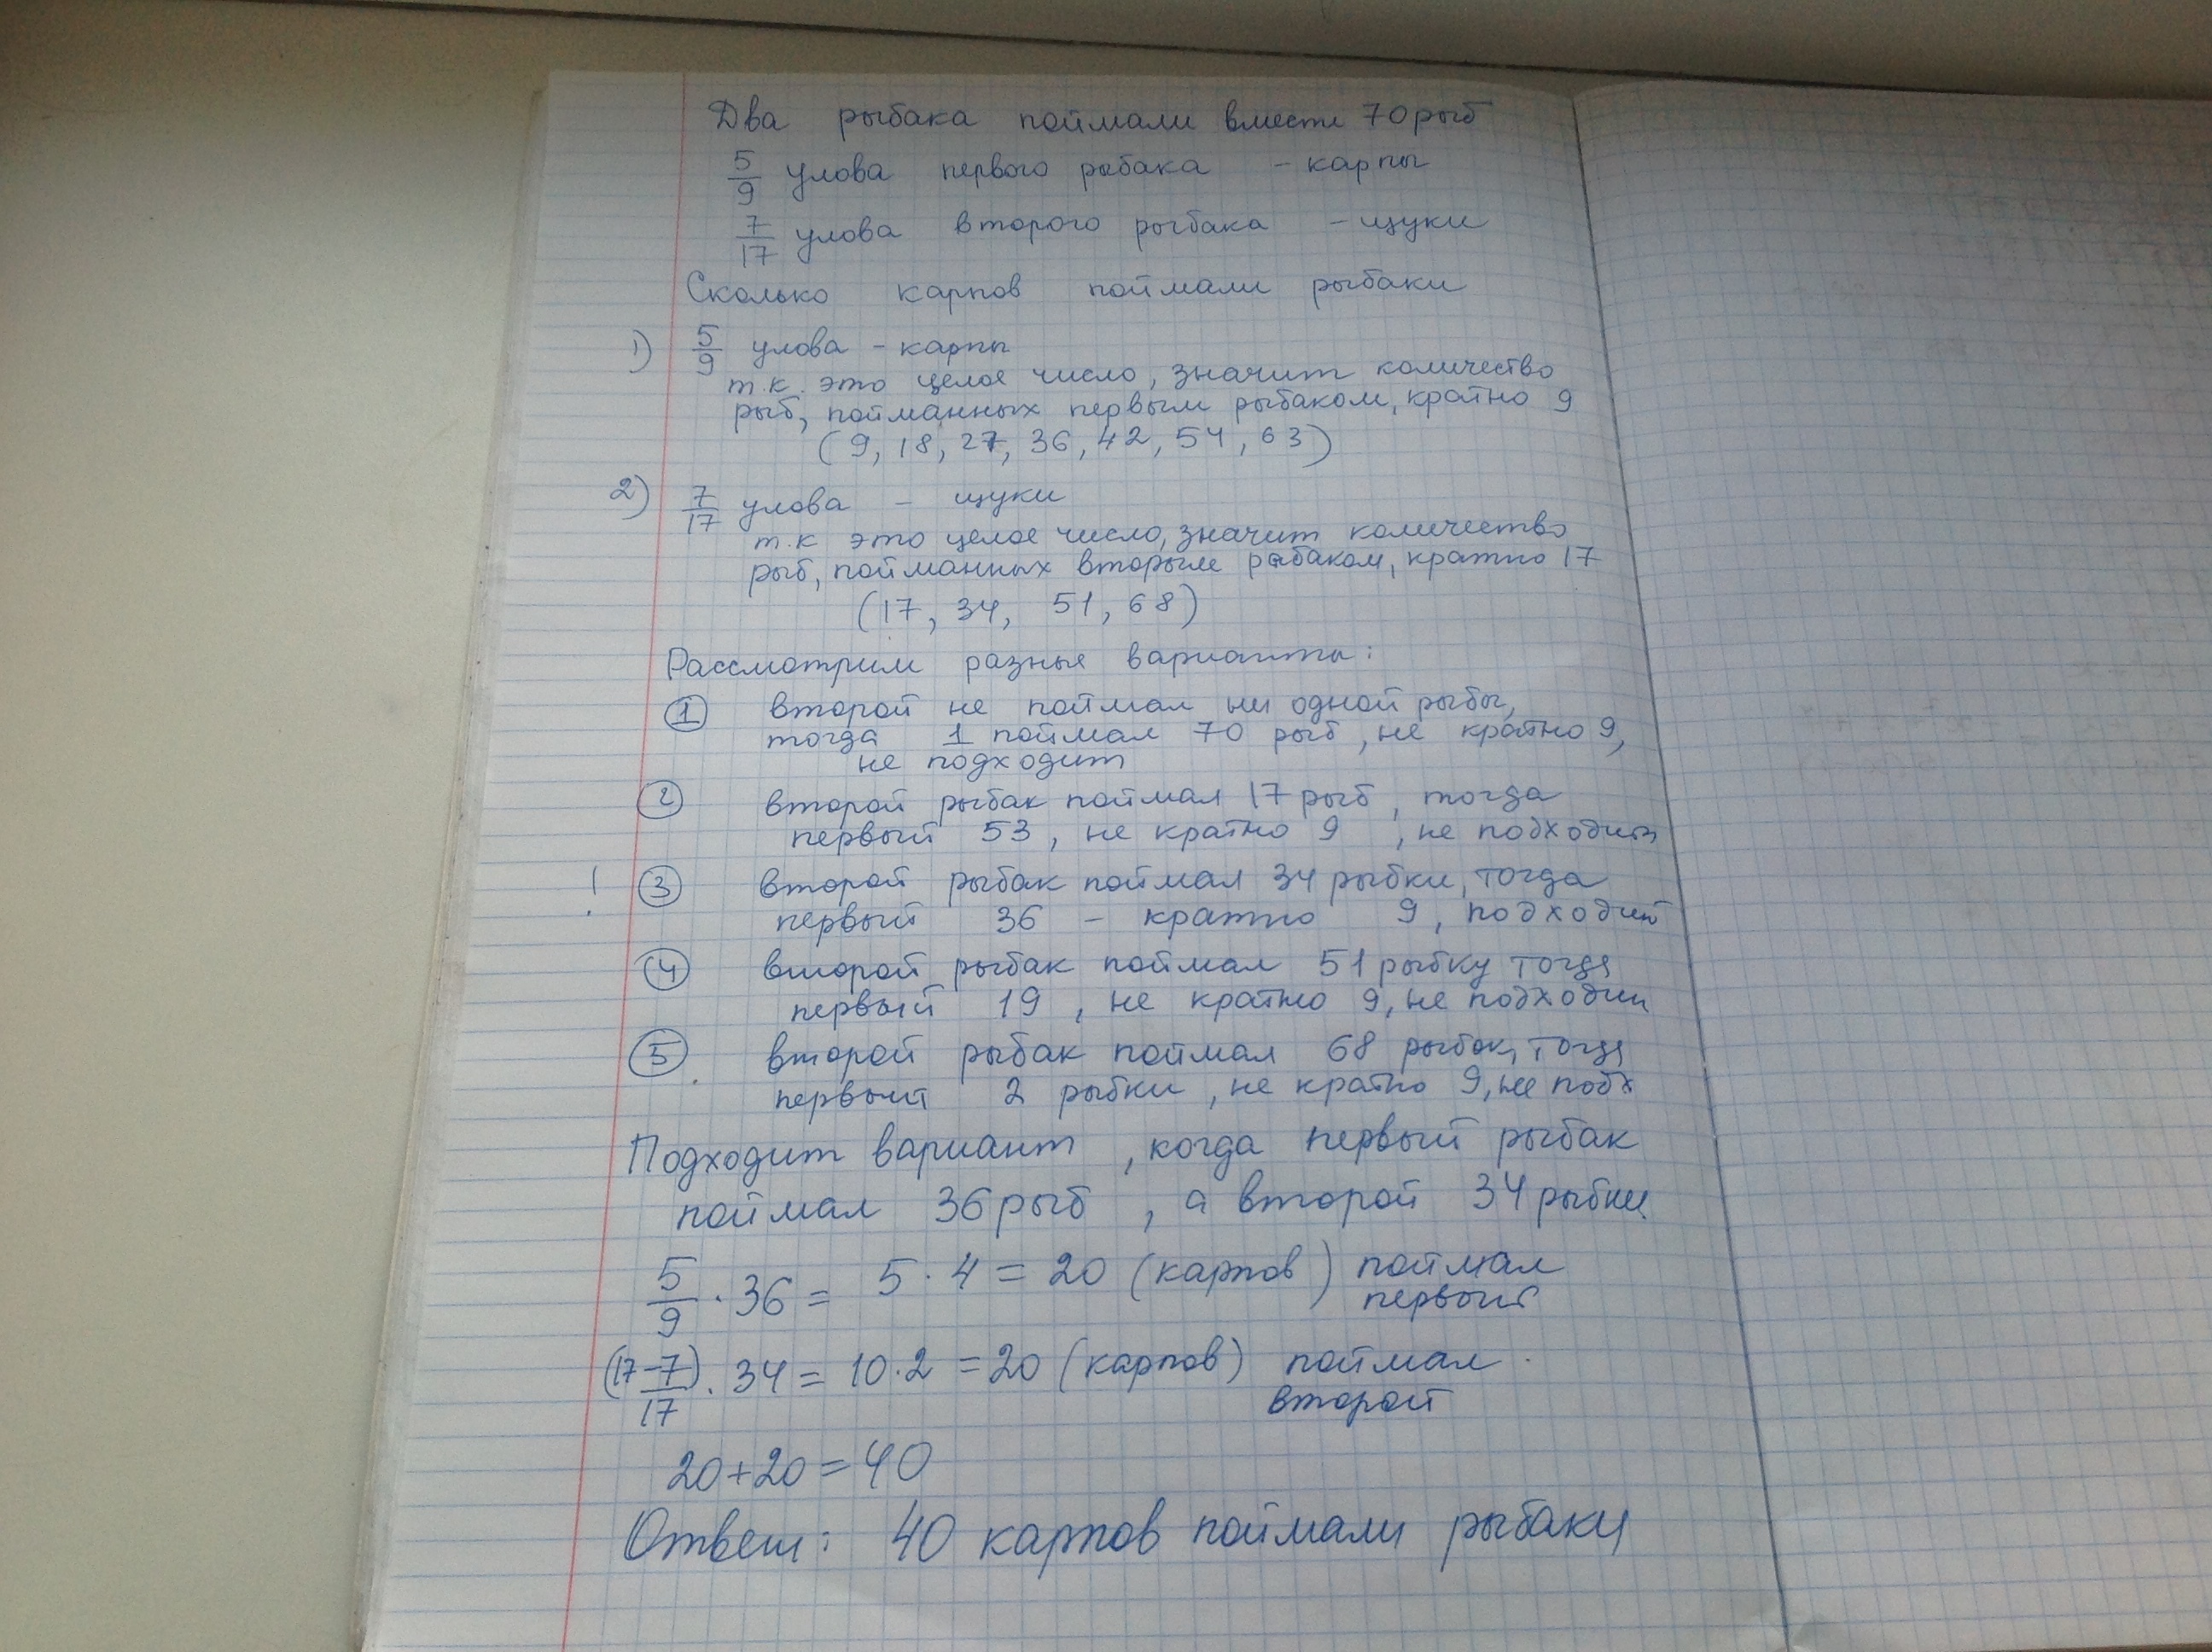 Два рыбака поймали вместе 70 рыб
5/9 улова первого рыбака - карпы
7/17 улова второго рыбака - щуки
Сколько карпов поймали рыбаки
1) 5/9 улова - карпы
т.к. это целое число, значит количество
рыб, пойманных первым рыбаком, кратно 9
(9, 18, 27, 36, 42, 54, 63)
2) 7/17 улова - щуки
т.к это целое число, значит количество
рыб, пойманных вторым рыбаком, кратно 17
(17, 34, 51, 68)
Рассмотрим разные варианты:
1 второй не поймал ни одной рыбы,
тогда 1 поймал 70 рыб, не кратно 9,
не подходит
2 второй рыбак поймал 17 рыб, тогда
первый 53, не кратно 9, не подходит
! 3 второй рыбак поймал 34 рыбки, тогда
первый 36 - кратно 9, подходит
4 второй рыбак поймал 51 рыбку тогда
первый 19, не кратно 9, не подходит
5 второй рыбак поймал 68 рыбок, тогда
первый 2 рыбки, не кратно 9, не подх
Подходит вариант, когда первый рыбак
поймал 36 рыб, а второй 34 рыбки
5/9 · 36 = 5 · 4 = 20 (карпов) поймал
первый
(17-7)/17 · 34 = 10·2 = 20 (карпов) поймал
второй
20+20=40
Ответ: 40 карпов поймали рыбаки